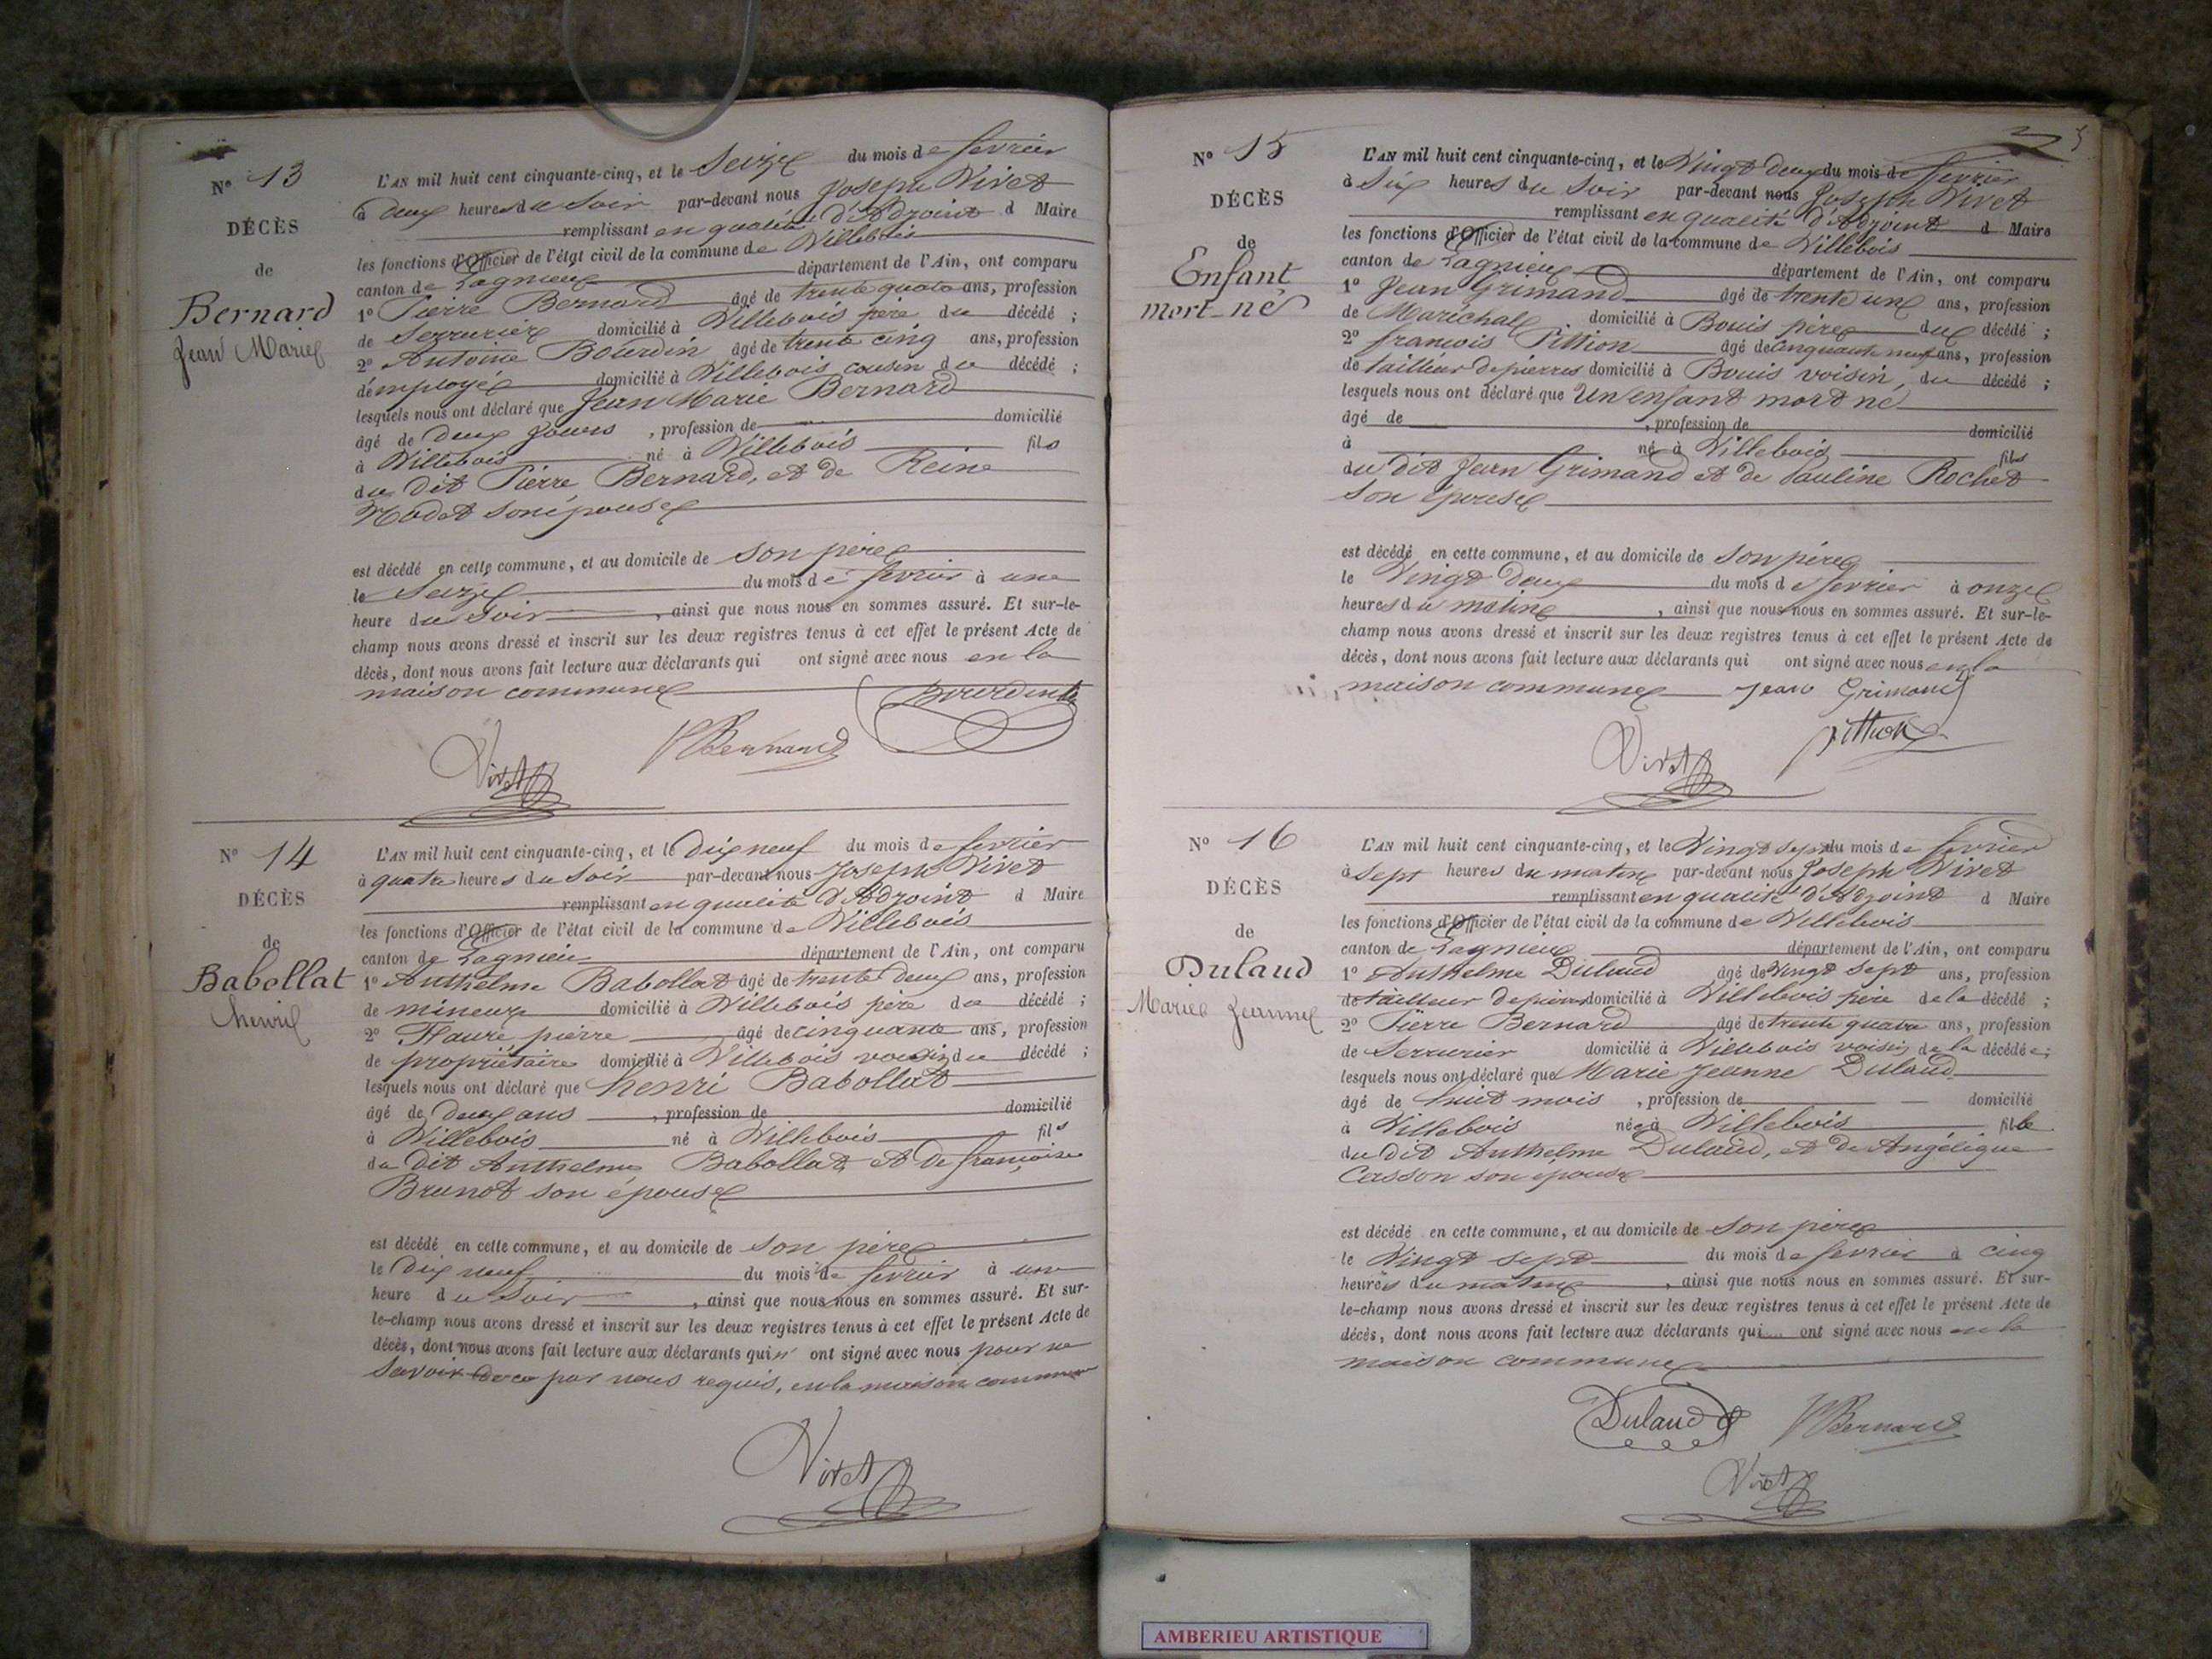 N° 13
DÉCÈS
de
Bernard
Jean Marie
L'AN mil huit cent cinquante-cinq, et le Seize du mois de fevrier
à deux heures du Soir par-devant nous Joseph Vivet
remplissant en qualité d'Adjoint d Maire
les fonctions d'Officier de l'état civil de la commune de Villebois
canton de Lagnieu département de l'Ain, ont comparu
1° Pierre Bernard âgé de trente quatre ans, profession
de Serrurier domicilié à Villebois père du décédé ;
2° Antoine Bourdin âgé de trente cinq ans, profession
d'employé domicilié à Villebois cousin du décédé ;
lesquels nous ont déclaré que Jean Marie Bernard
âgé de deux jours , profession de domicilié
à Villebois né à Villebois fils
du dit Pierre Bernard, et de Reine
Modet son épouse
est décédé en cette commune, et au domicile de son père
le Seize du mois de fevrier à une
heure du Soir , ainsi que nous nous en sommes assuré. Et sur-le-
champ nous avons dressé et inscrit sur les deux registres tenus à cet effet le présent Acte de
décès, dont nous avons fait lecture aux déclarants qui ont signé avec nous en la
maison commune
Bourdin
PBernard
Vivet
N° 14
DÉCÈS
de
Babollat
henri
L'AN mil huit cent cinquante-cinq, et le dix neuf du mois de fevrier
à quatre heures du Soir par-devant nous Joseph Vivet
remplissant en qualité d'Adjoint d Maire
les fonctions d'Officier de l'état civil de la commune de Villebois
canton de Lagnieu département de l'Ain, ont comparu
1° Anthelme Babollat âgé de trente deux ans, profession
de mineur domicilié à Villebois père du décédé ;
2° Faure pierre âgé de cinquante ans, profession
de propriétaire domicilié à Villebois voisin du décédé ;
lesquels nous ont déclaré que henri Babollat
âgé de deux ans , profession de domicilié
à Villebois né à Villebois fils
du dit Anthelme Babollat et de françoise
Brunot son épouse
est décédé en cette commune, et au domicile de son père
le dix neuf du mois de fevrier à une
heure du Soir , ainsi que nous nous en sommes assuré. Et sur-
le-champ nous avons dressé et inscrit sur les deux registres tenus à cet effet le présent Acte de
décès, dont nous avons fait lecture aux déclarants qui n' ont signé avec nous pour ne
savoir de ce par nous requis, en la maison commune
Vivet
N° 15
DÉCÈS
de
Enfant
mort-né
L'AN mil huit cent cinquante-cinq, et le Vingt deux du mois de fevrier
à Six heures du Soir par-devant nous Joseph Vivet
remplissant en qualité d'Adjoint d Maire
les fonctions d'Officier de l'état civil de la commune de Villebois
canton de Lagnieu département de l'Ain, ont comparu
1° Jean Grimand âgé de trente un ans, profession
de Marichal domicilié à Bouis père du décédé ;
2° francois Pittion âgé de cinquante neuf ans, profession
de tailleur de pierres domicilié à Bouis voisin, du décédé ;
lesquels nous ont déclaré que Un enfant mort né
âgé de , profession de domicilié
à né à Villebois fils
du dit Jean Grimand et de Pauline Rochet
son épouse
est décédé en cette commune, et au domicile de son père
le Vingt deux du mois de fevrier à onze
heures du matin , ainsi que nous nous en sommes assuré. Et sur-le-
champ nous avons dressé et inscrit sur les deux registres tenus à cet effet le présent Acte de
décès, dont nous avons fait lecture aux déclarants qui ont signé avec nous en la
maison commune Jean Grimand
pittion
Vivet
N° 16
DÉCÈS
de
Dulaud
Marie Jeanne
L'AN mil huit cent cinquante-cinq, et le Vingt sept du mois de fevrier
à Sept heures du matin par-devant nous Joseph Vivet
remplissant en qualité d'Adjoint d Maire
les fonctions d'Officier de l'état civil de la commune de Villebois
canton de Lagnieu département de l'Ain, ont comparu
1° Anthelme Dulaud âgé de Vingt sept ans, profession
de tailleur de pierres domicilié à Villebois père de la décédé ;
2° Pierre Bernard âgé de trente quatre ans, profession
de Serrurier domicilié à Villebois voisin de la décédée ;
lesquels nous ont déclaré que Marie Jeanne Dulaud
âgé de huit mois , profession de domicilié
à Villebois née à Villebois fille
du dit Anthelme Dulaud, et de Angélique
Casson son épouse
est décédé en cette commune, et au domicile de son père
le Vingt sept du mois de fevrier à cinq
heures du matin , ainsi que nous nous en sommes assuré. Et sur-
le-champ nous avons dressé et inscrit sur les deux registres tenus à cet effet le présent Acte de
décès, dont nous avons fait lecture aux déclarants qui ont signé avec nous en la
maison commune
Dulaud PBernard
Vivet
AMBERIEU ARTISTIQUE